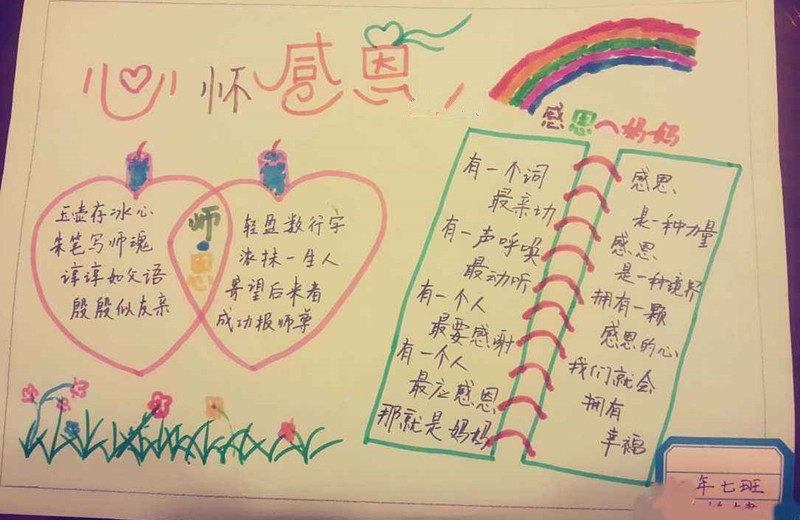 心怀感恩
感恩 妈妈
师恩
玉壶存冰心
朱笔写师魂
谆谆如父语
殷殷似友亲
轻盈数行字
浓抹一生人
寄望后来者
成功报师尊
有一个词
最亲切
有一声呼唤
最动听
有一个人
最要感谢
有一个人
最应感恩
那就是妈妈
感恩
是一种力量
感恩
是一种境界
拥有一颗
感恩的心
我们就会
拥有
幸福
年七班